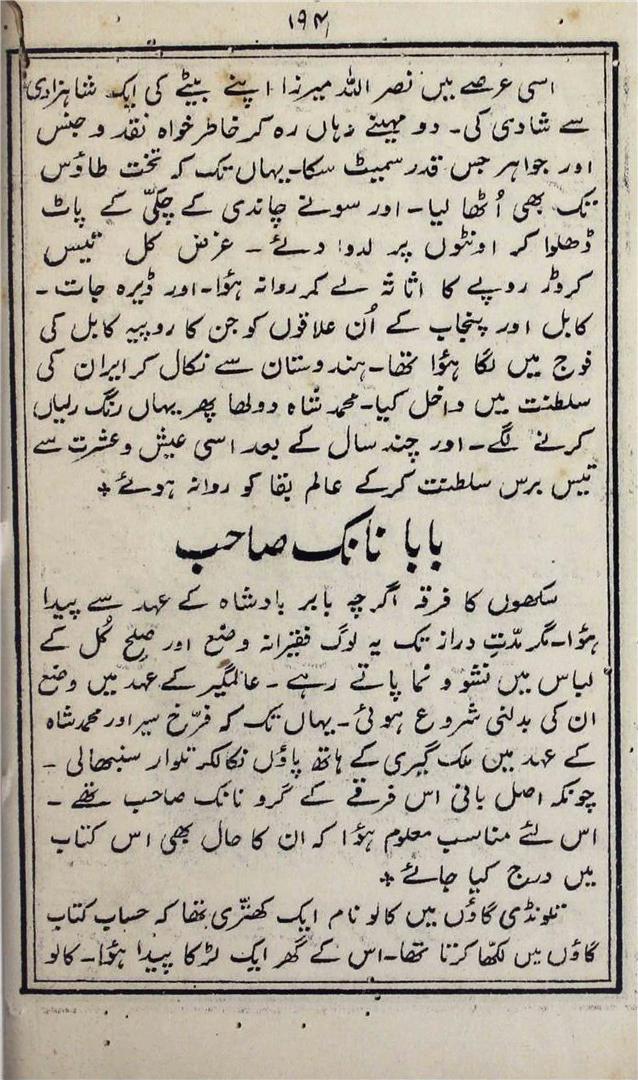 ۱۹۴
اسی عرصے میں نصر اللہ میرزا اپنے بیٹے کی ایک شاہزادی
سے شادی کی۔ دو مہینے وہاں رہ کر خاطر خواہ نقد و جنس
اور جواہر جس قدر سمیٹ سکا۔ یہاں تک کہ تخت طاؤس
تک بھی اُٹھا لیا۔ اور سونے چاندی کے چکّی کے پاٹ
ڈھلوا کر اونٹوں پر لدوا دئے۔ غرض کل تیس
کروڑ روپے کا اثاثہ لے کر روانہ ہؤا۔ اور ڈیرہ جات۔
کابل اور پنجاب کے اُن علاقوں کو جن کا روپیہ کابل کی
فوج میں لگا ہؤا تھا۔ ہندوستان سے نکال کر ایران کی
سلطنت میں داخل کیا۔ محمد شاہ دولھا پھر یہاں رنگ رلیاں
کرنے لگے۔ اور چند سال کے بعد اسی عیش و عشرت سے
تیس برس سلطنت کرکے عالم بقا کو روانہ ہوئے +
بابا نانک صاحب
سکھوں کا فرقہ اگرچہ بابر بادشاہ کے عہد سے پیدا
ہؤا۔ مگر مدّتِ دراز تک یہ لوگ فقیرانہ وضع اور صلح کُل کے
لباس میں نشو و نما پاتے رہے۔ عالمگیر کے عہد میں وضع
ان کی بدلنی شروع ہوئی۔ یہاں تک کہ فرّخ سیر اور محمد شاہ
کے عہد میں ملک گیری کے ہاتھ پاؤں نکالکر تلوار سنبھالی۔
چونکہ اصل بانی اس فرقے کے گرو نانک صاحب تھے۔
اس لئے مناسب معلوم ہؤا کہ ان کا حال بھی اس کتاب
میں درج کیا جائے +
تلونڈی گاؤں میں کالو نام ایک کھتری تھا کہ حساب کتاب
گاؤں میں لکھا کرتا تھا۔ اس کے گھر ایک لڑکا پیدا ہؤا۔ کالو